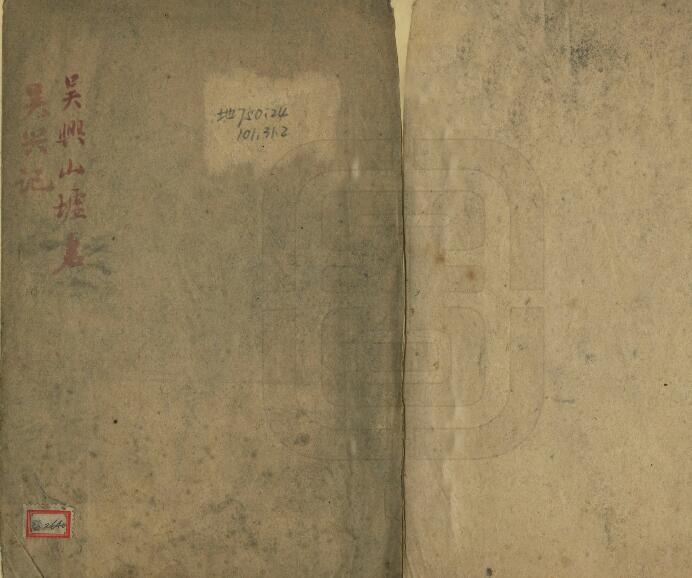 吴興山墟名
吴兴记
地750.24
101.31.2
2640